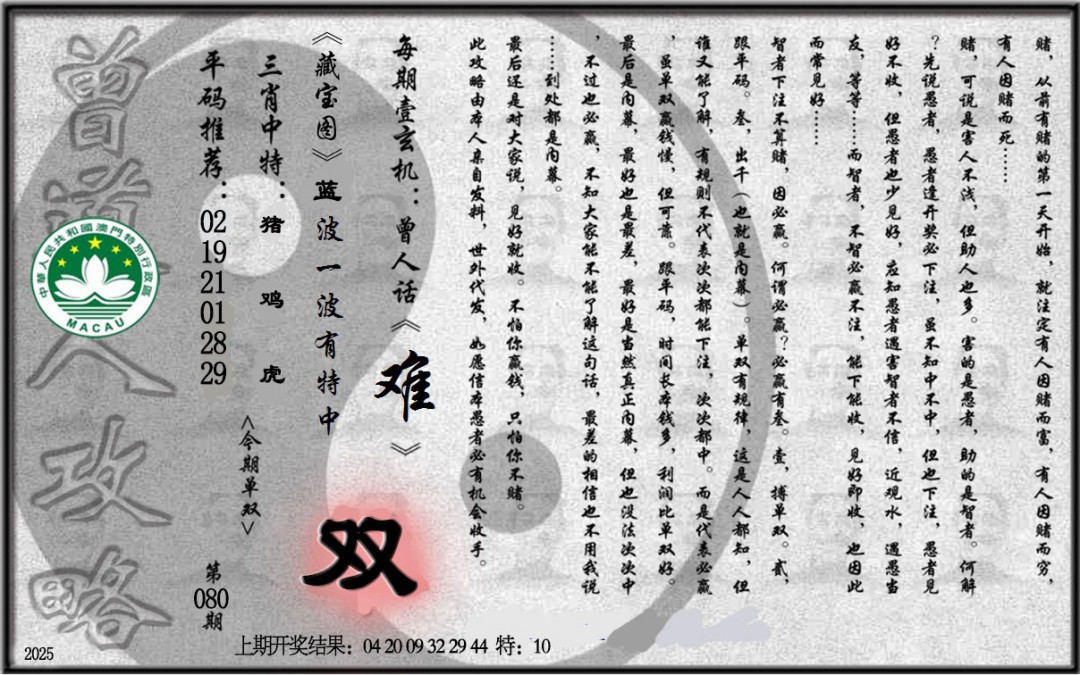 赌，从前有赌的第一天开始，就注定有人因赌而富，有人因赌而穷，
有人因赌而死……
赌，可说是害人不浅，但助人也多。害的是愚者，助的是智者。何解
？先说愚者，愚者逢开奖必下注，虽不知中不中，但也下注，愚者见
好不收，但愚者也少见好，应知愚者遇害智者不信，近观水，遇愚当
友，等等……而智者，不智必赢不注，能下能收，见好即收，也因此
而常见好……
智者下注不算赌，因必赢。何谓必赢？必赢有叁。壹，搏单双。贰，
跟平码。叁，出千（也就是内幕）。单双有规律，这是人人都知，但
谁又能了解，有规则不代表次次都能下注，次次都中。而是代表必赢
，虽单双赢钱慢，但可靠。跟平码，时间长本钱多，利润比单双好。
最后是内幕，最好也是最差，最好是当然真正内幕，但也没法次次中
，不过也必赢，不知大家能不能了解这句话，最差的相信也不用我说
……到处都是内幕。
最后还是对大家说，见好就收。不怕你赢钱，只怕你不赌。
此攻略由本人亲自发料，世外代发，如愿信本愚者必有机会收手。
每期壹玄机：曾人话《难》
《藏宝图》蓝波一波有特中
双
三肖中特：猪 鸡 虎
<今期单双>
平码推荐：02 19 21 01 28 29
第080期
曾道人攻略
中華人民共和國澳門特別行政區
MACAU
上期开奖结果：04 20 09 32 29 44 特：10
2025